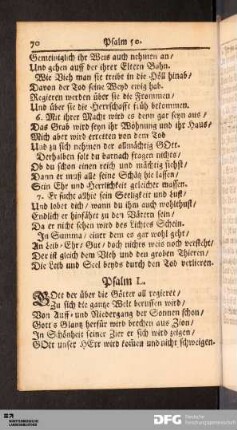 70 Psalm 50.
Gemeiniglich ihr Weis auch nehmen an/
Und gehen auff der ihrer Eltern Bohn.
Wie Vieh man sie treibt in die Höll hinab/
Davon der Tod seine Weyd ewig hab.
Regieren werden über sie die Frommen/
Und über sie die Herrschafft früh bekommen.
6. Mit ihrer Macht wird es denn gar seyn aus/
Das Grab wird seyn ihr Wohnung und ihr Haus/
Mich aber wird erretten von dem Tod
Und zu sich nehmen der allmächtig GOtt.
Derhalben solt du darnach fragen nichts/
Ob du schon einen reich und mächtig siehst/
Dann er muß alle seine Schätz hie lassen/
Sein Ehr und Herrlichkeit geleichter massen.
7. Er sucht allhie sein Seeligkeit und Lust/
Und lobet dich/ wann du ihm auch wohlthust/
Endlich er hinfähret zu den Vätern sein/
Da er nicht sehen wird des Lichtes Schein.
In Summa/ einer dem es gar wohl geht/
An Leib/Ehr/Gut/doch nichts weis noch versteht/
Der ist gleich dem Vieh und den groben Thieren/
Die Leib und Seel beyds durch den Tod verlieren.
Psalm L.
GOtt der über die Götter all regieret/
Zu sich die gantze Welt beruffen wird/
Von Auff- und Niedergang der Sonnen schon/
Gott s Glantz herfür wird brechen aus Zion/
In Schönheit seiner Zier er sich wird zeigen/
GOtt unser HErr wird kommen und nicht schweigen.
DFG Deutsche Forschungsgemeinschaft